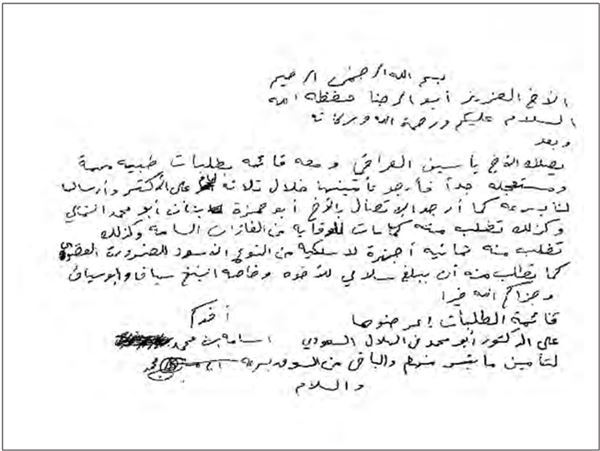 بسم الله الرحمن الرحيم
الأخ العزيز أبو الرضا حفظه الله
السلام عليكم ورحمة الله وبركاته
وبعد
يصلك الأخ ياسين العراقي ومعه قائمة بطلبات طبية مهمة
ومستعجلة جداً فأرجو تأمينها خلال ثلاثة على الأكثر وأرسالها
لنا بسرعة كما أرجو الاتصال بالأخ أبو حمزة من أبو محمد
وكذلك تطلب منه كمامات للوقاية من الغازات السامة وكذلك
تطلب منه ثمانية أجهزة لا سلكية من النوع الأسود للضرورة القصوى
كما نطلب منه أن يبلغ سلامي للأخوة وخاصة الشيخ سياف وأبو سياف
وجزاكم الله خيرا
قائمة الطلبات إعرضوها أخوكم
على الدكتور أبو محمد من الهلال السعودي أسامة بن محمد
لتأمين ما تيسر منهم والباقي من السوق بسرعة
والسلام